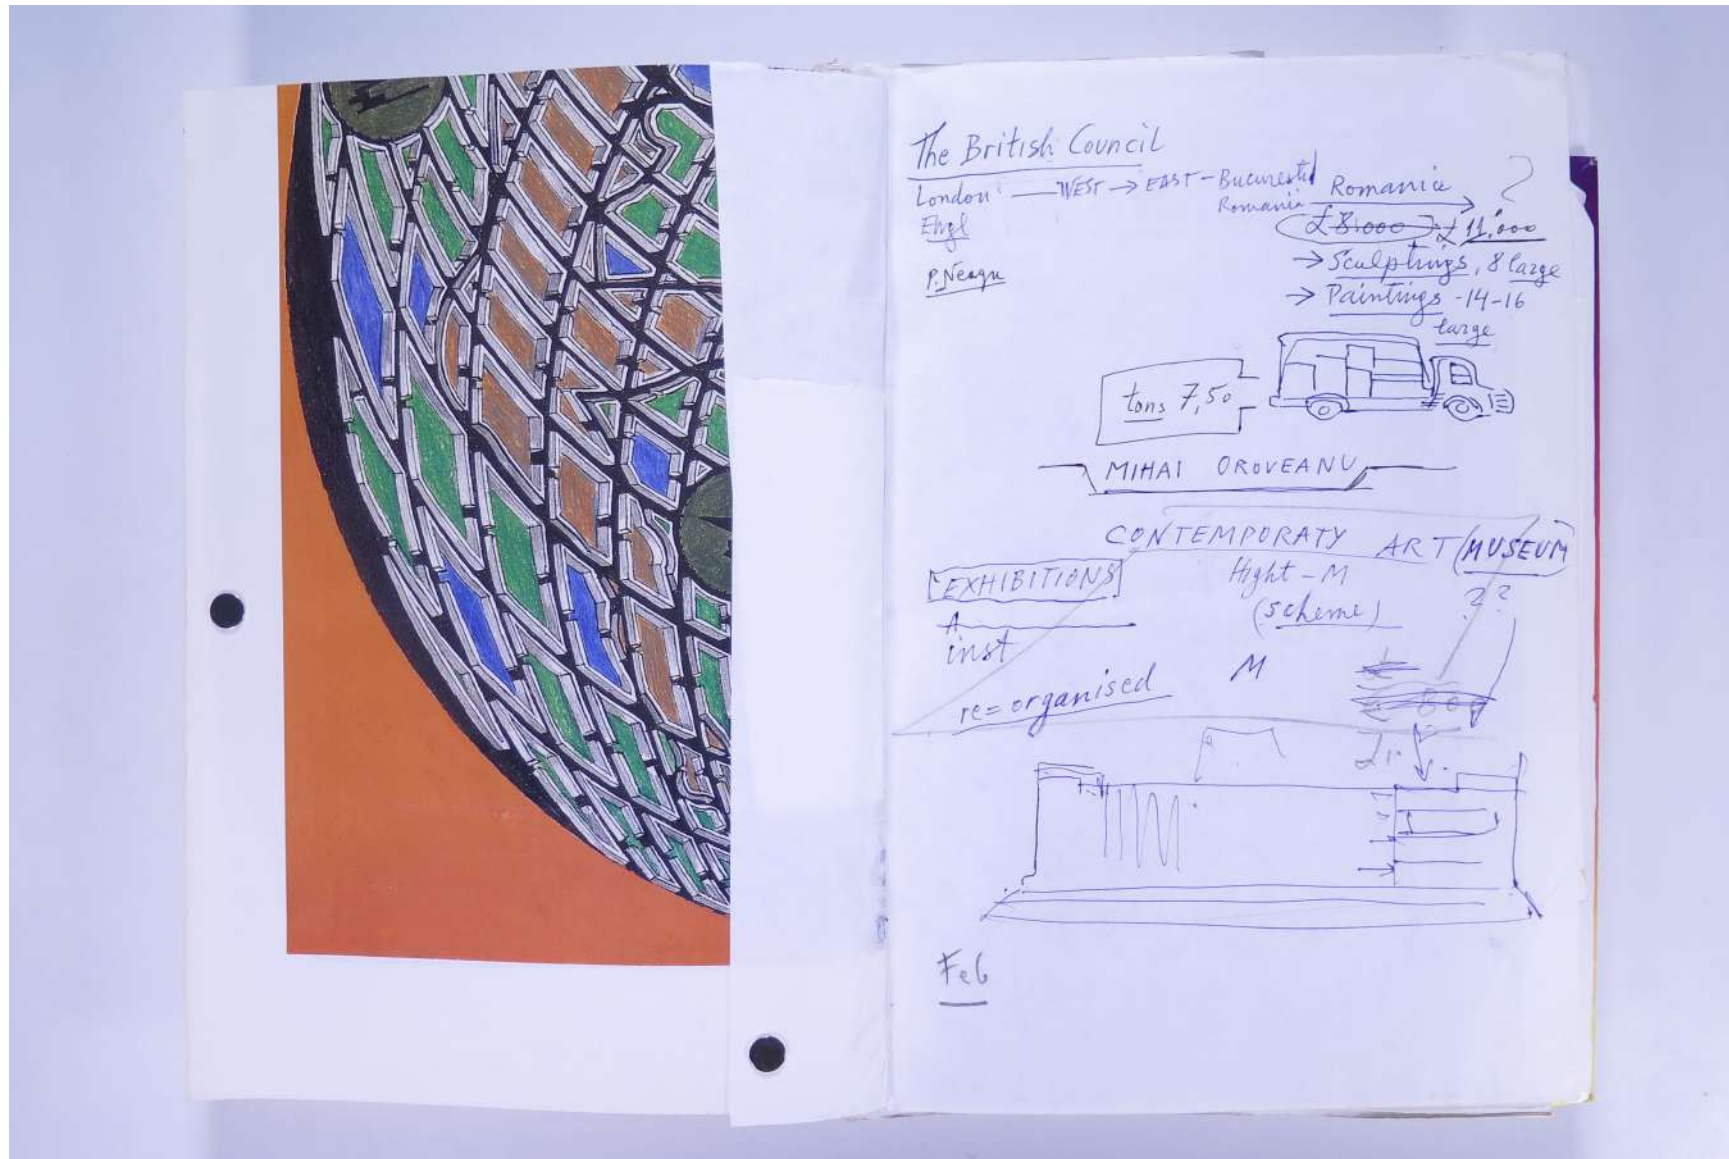 The British Council
London — WEST → EAST - Bucuresti
Romania
Romania
Engl
£8.000 £ 11.000
P. Neagu
→ Sculptings, 8 large
→ Paintings - 14-16
large
tons 7,50
MIHAI OROVEANU
CONTEMPORATY ART (MUSEUM)
EXHIBITIONS
Hight - M
? ?
(scheme)
A
inst
M
re=organised
Feb